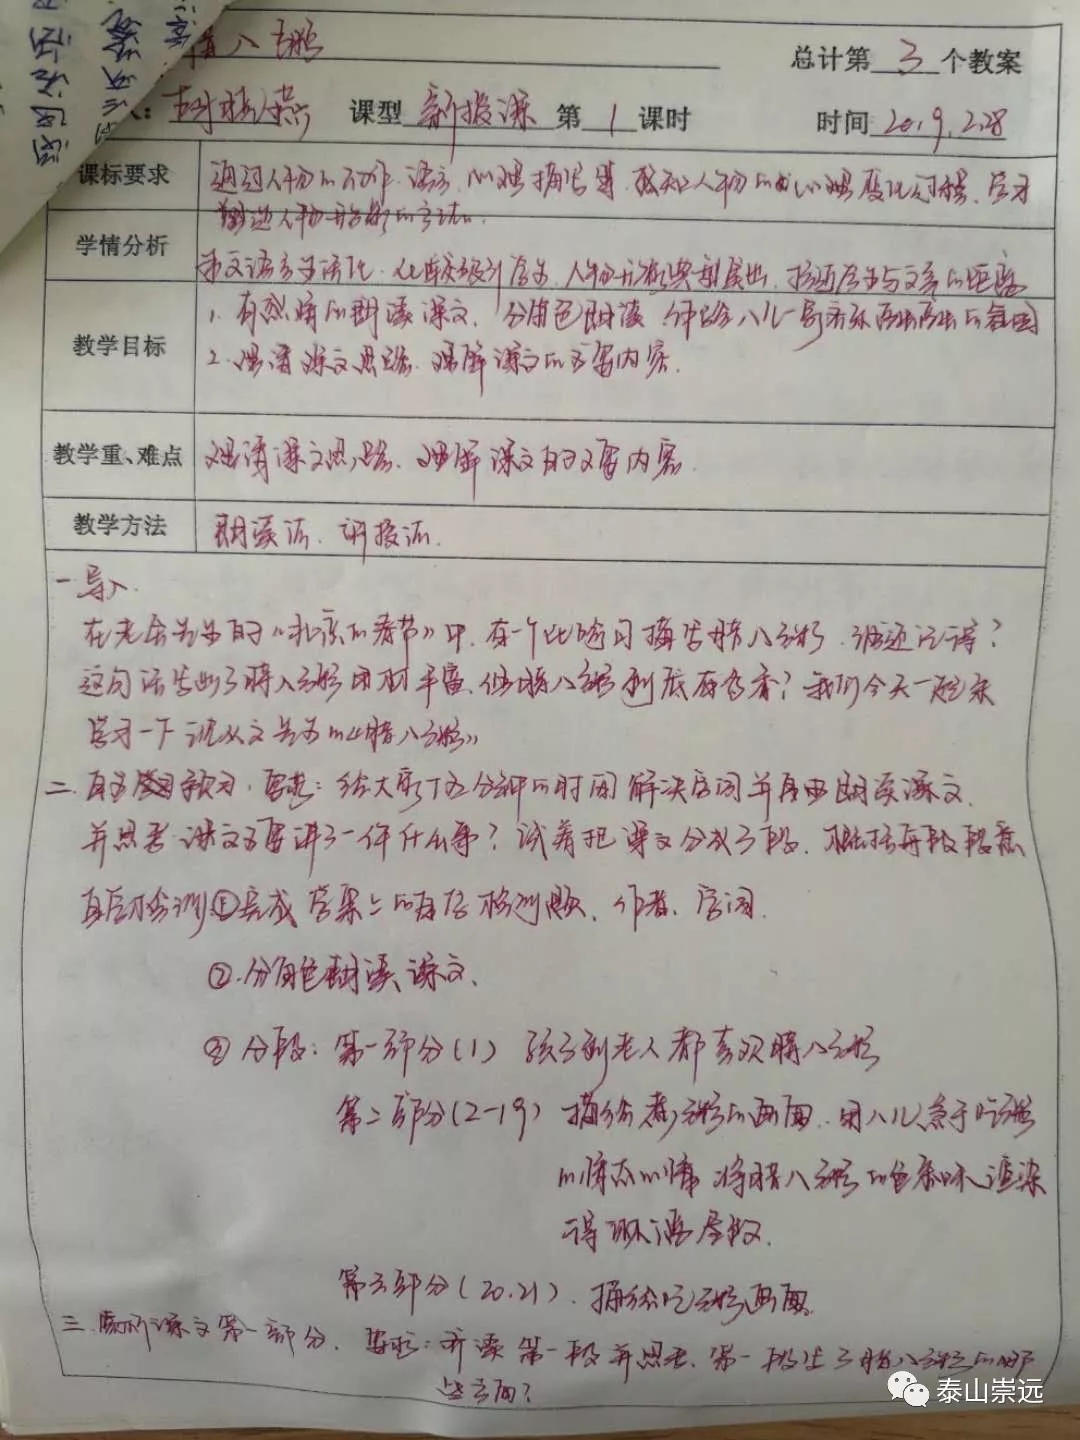 腊八粥
总计第 3 个教案
课型 新授课 第 1 课时
时间 2019.2.28
课标要求
通过人物的动作、语言、心理描写等，感知人物的心理变化过程，学习
描述人物形象的方法。
学情分析
本文语言生活化，比较吸引学生，人物形象典型突出，拉近学生与文本的距离
教学目标
1. 有感情的朗读课文，分角色朗读，体会八儿一家其乐融融的氛围
2. 理清课文思路，理解课文的主要内容。
教学重、难点
理清课文思路、理解课文的主要内容
教学方法
朗读法、讲授法.
一.导入.
在老舍先生的《北京的春节》中，有一个比喻句描写腊八粥，谁还记得？
这句话写出了腊八粥用材丰富，但腊八粥到底有多香？我们今天一起来
学习一下沈从文先生的《腊八粥》
二. 自主预习，要求：给大家十五分钟的时间解决字词并自由朗读课文，
并思考课文主要讲了一件什么事？试着把课文分成3段，概括每段段意
自启检测①完成学案上的自启检测题、作者、字词.
②.分角色朗读课文、
③ 分段：第一部分（1） 孩子到老人都喜欢腊八粥
第二部分（2-19） 描绘煮粥的画面，用八儿急于吃粥
的情态心情 将腊八粥的色香味渲染
得
第三部分（20.21）.描绘吃粥画面.
三.课文第一部分. 要求：齐读第一段并思考，第一段写了腊八粥的哪
些方面？
泰山崇远